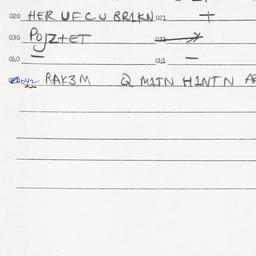 020 HER UFCU BR1KN 021 +
030 POJZ+ET 031
040 — 041 —
RAK3M Q M1TN H1NTN